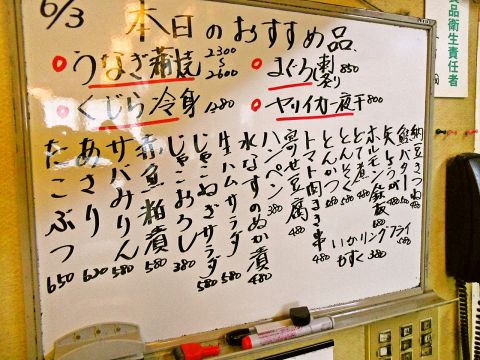 6/3 本日のおすすめ品
うなぎ蒲焼 2300〜2600
まぐろ刺 850
くじら冷身 1280
ヤリイカ一夜干 800
納豆きつね
鮭バター 580
ホルモン鉄板 680
とんそく 580
とんかつ 580
トマト肉まき串 480
いかリングフライ 580
もずく 380
寄せ豆腐 480
ハンペン 380
水なすのぬか漬 480
生ハムサラダ 580
じゃこねぎサラダ 580
じゃこおろし 380
赤魚粕漬 580
サバみりん 580
あさり 600
たこぶつ 650
品衛生責任者